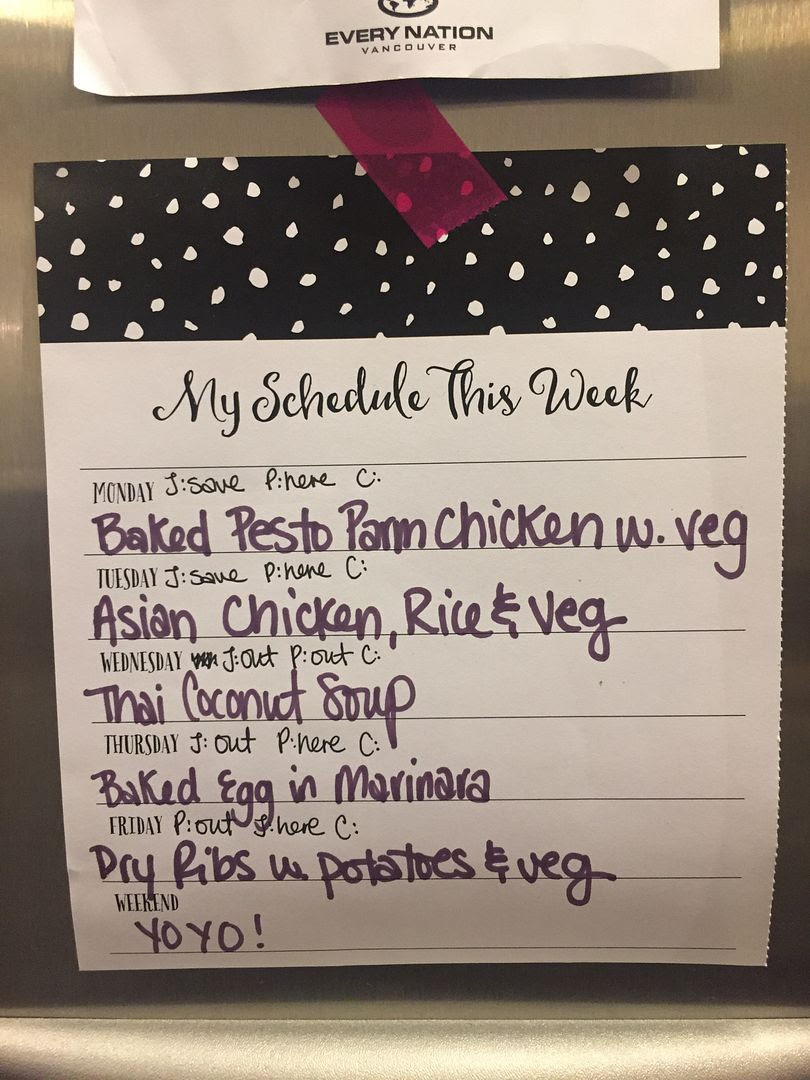 EVERY NATION
VANCOUVER
My Schedule This Week
MONDAY J:save P:here C:
Baked Pesto Parm Chicken w. veg
TUESDAY J:save P:here C:
Asian Chicken, Rice & Veg
WEDNESDAY J:out P:out C:
Thai Coconut Soup
THURSDAY J: out P:here C:
Baked Egg in Marinara
FRIDAY P:out J:here C:
Dry Ribs w. potatoes & veg
WEEKEND
YOYO!